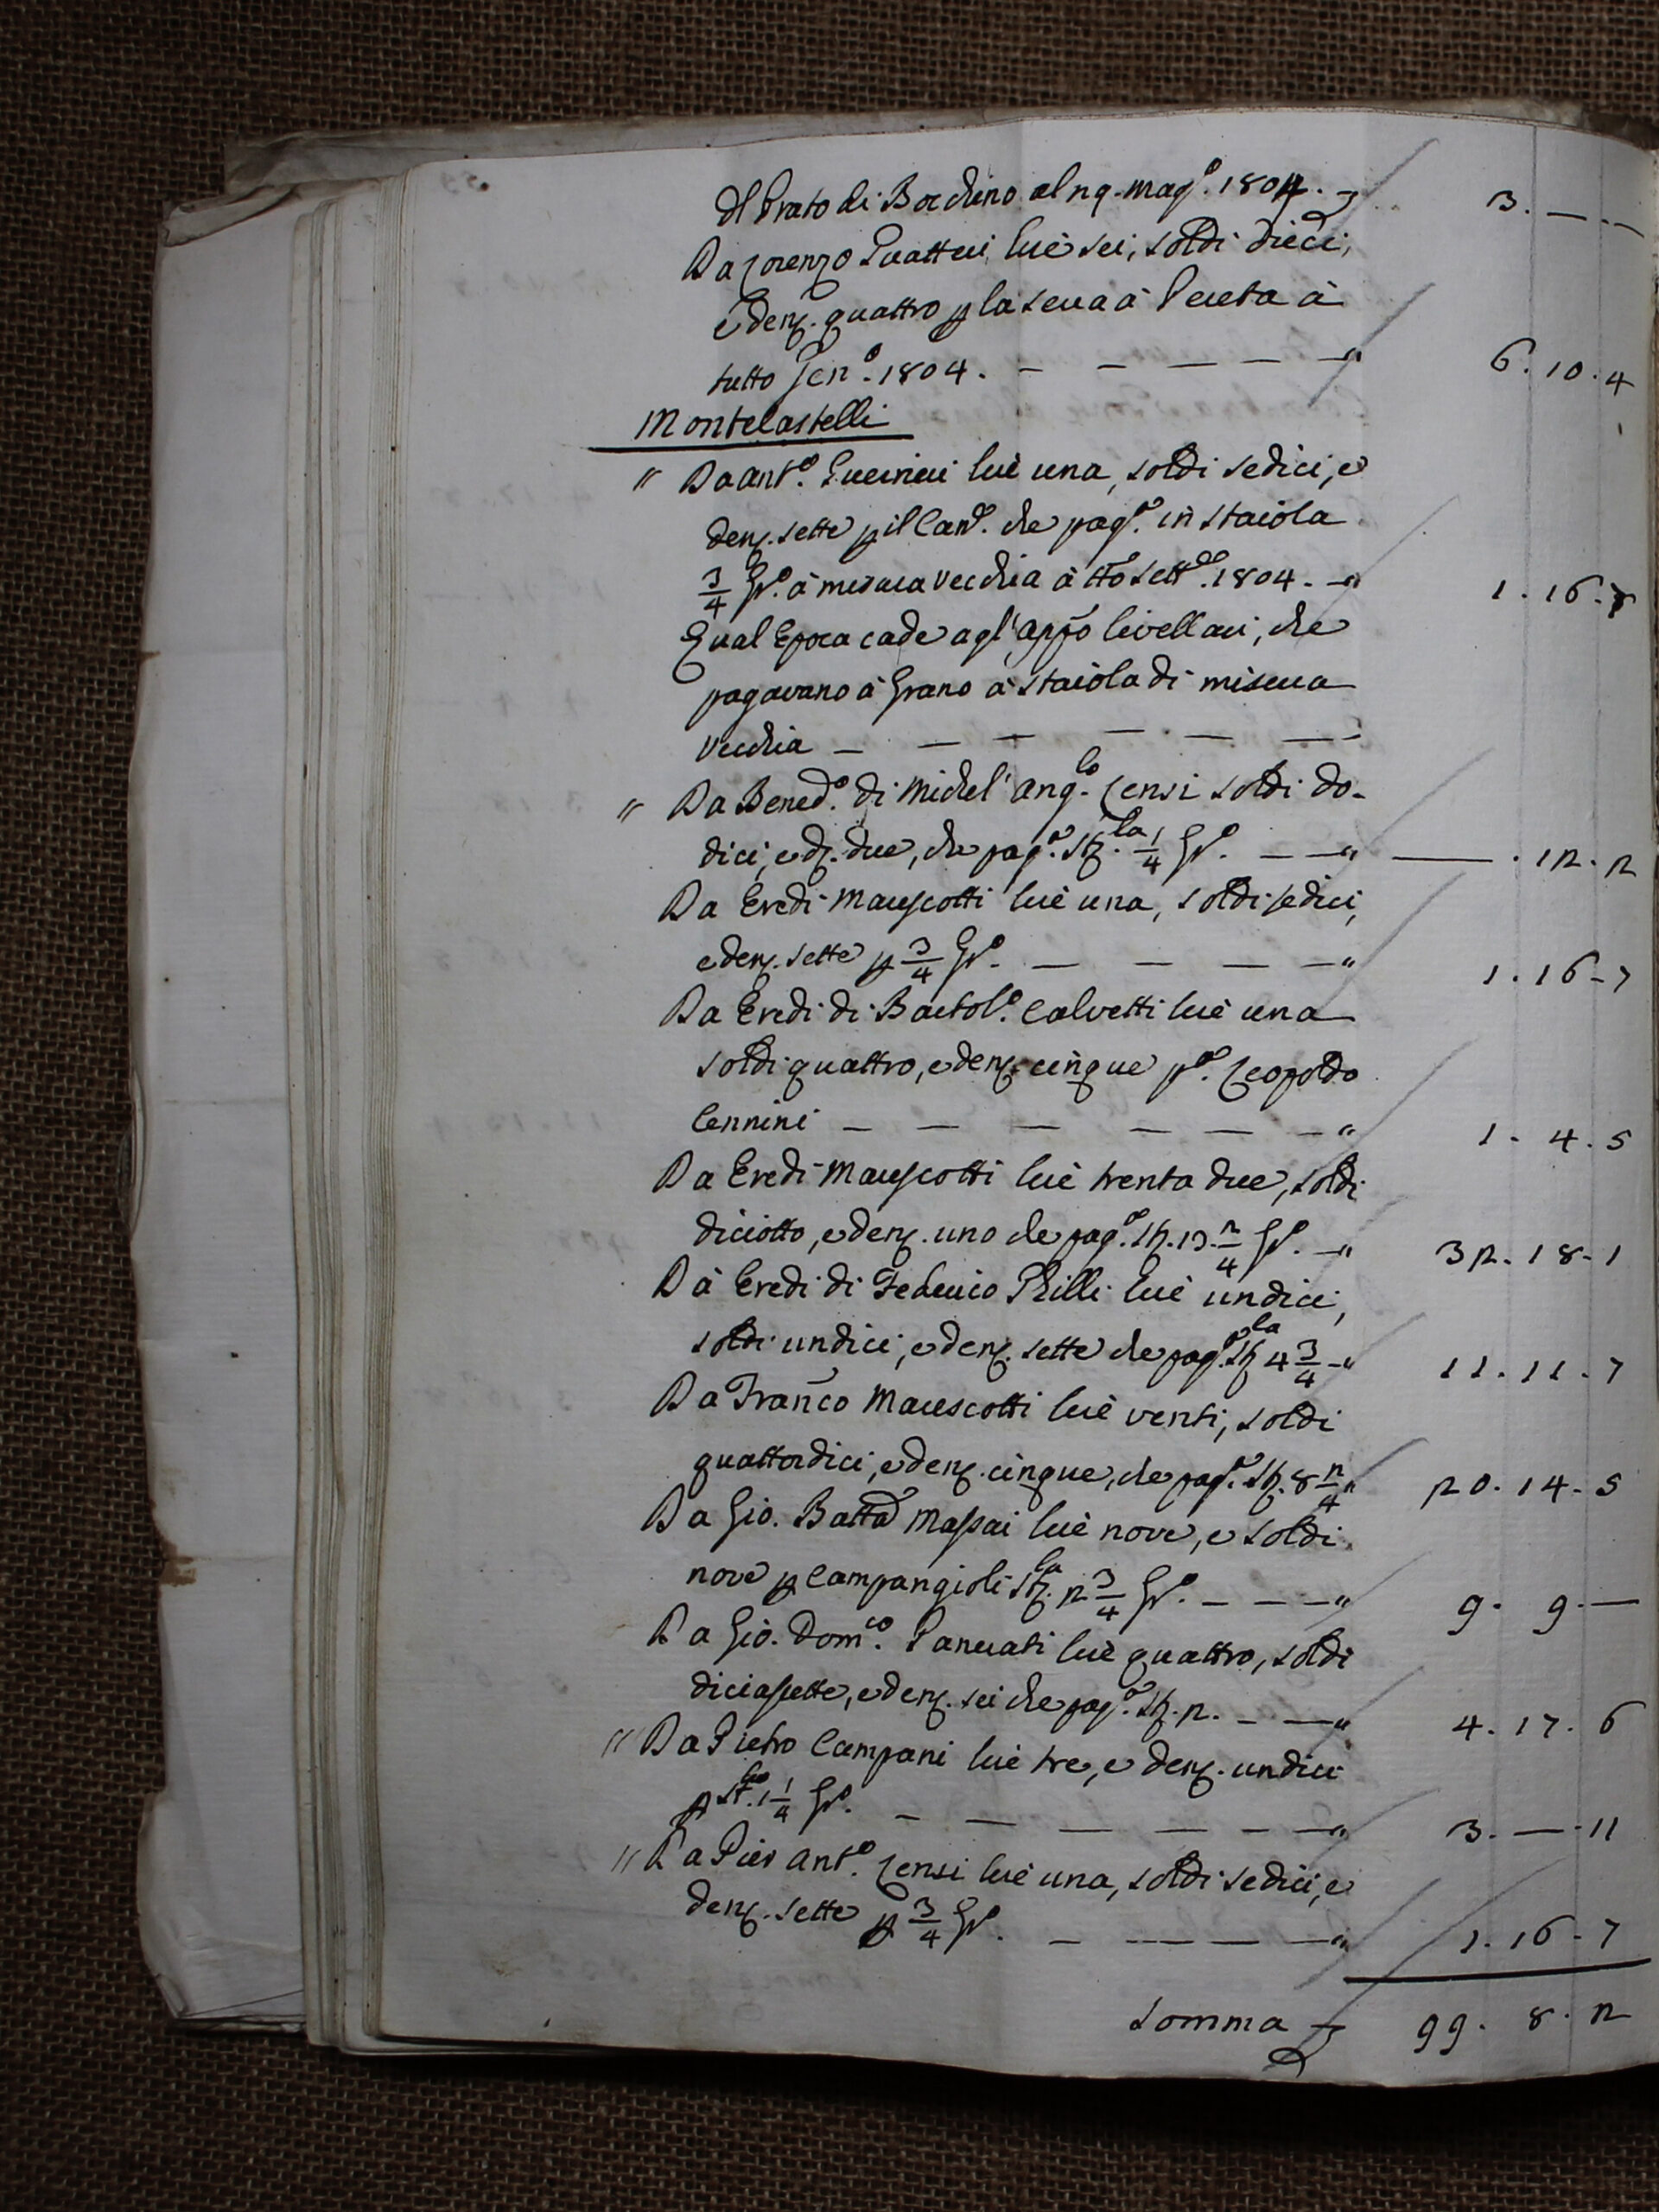 Al Prato di Bocheno al 29. Magº. 1804. 3. — . —
Da Lorenzo Quattrini lire sei, soldi dieci,
e den. quattro p la terra à Pereta à
tutto Genº. 1804. — — — — — " 6. 10. 4
Montecastelli
" Da Antº. Guerrieri lire una, soldi sedici, e
den. sette p il Canº. che pagº. in staiola
3/4 Grº. à misura vecchia à ttº Settᵉ. 1804. — " 1. 16. 7
Qual Epoca cade agl'appº livellari, che
pagavano à Grano à Staiola di misura
vecchia — — — — — —
" Da Benedº. di Michel'Angˡᵒ. Censi soldi do-
dici, e d. due, che pagº. Stˡᵃ. 1/4 Grº. — — " — . 12. 2
Da Eredi Mariscotti lire una, soldi sedici,
e den. sette p 3/4 Grº. — — — — " 1. 16. 7
Da Eredi di Bartolº. Calvetti lire una
soldi quattro, e den. cinque pº. Leopoldo
Cennini — — — — — — " 1. 4. 5
Da Eredi Mariscotti lire trenta due, soldi
diciotto, e den. uno che pagº. St. 13. 2/4 Grº. — " 32. 18. 1
Dà Eredi di Federico Philli lire undici,
soldi undici, e den. sette che pagº. Stˡᵃ 4 3/4 — " 11. 11. 7
Da Franco Mariscotti lire venti, soldi
quattordici, e den. cinque, che pagº. St. 8 2/4 " 20. 14. 5
Da Gio. Batta Massai lire nove, e soldi
nove p Campangioli Stˡᵃ. 2 3/4 Grº. — — — " 9. 9. —
Da Gio. Domᶜᵒ. Pancrati lire quattro, soldi
diciassette, e den. sei che pagº. St. 2. — — " 4. 17. 6
" Da Pietro Campani lire tre, e den. undici
p Stˡᵃ. 1 1/4 Grº. — — — — — — " 3. — . 11
" Da Pier Antº. Censi lire una, soldi sedici, e
den. sette p 3/4 Grº. — — — — — " 1. 16. 7
Somma 99. 8. 2